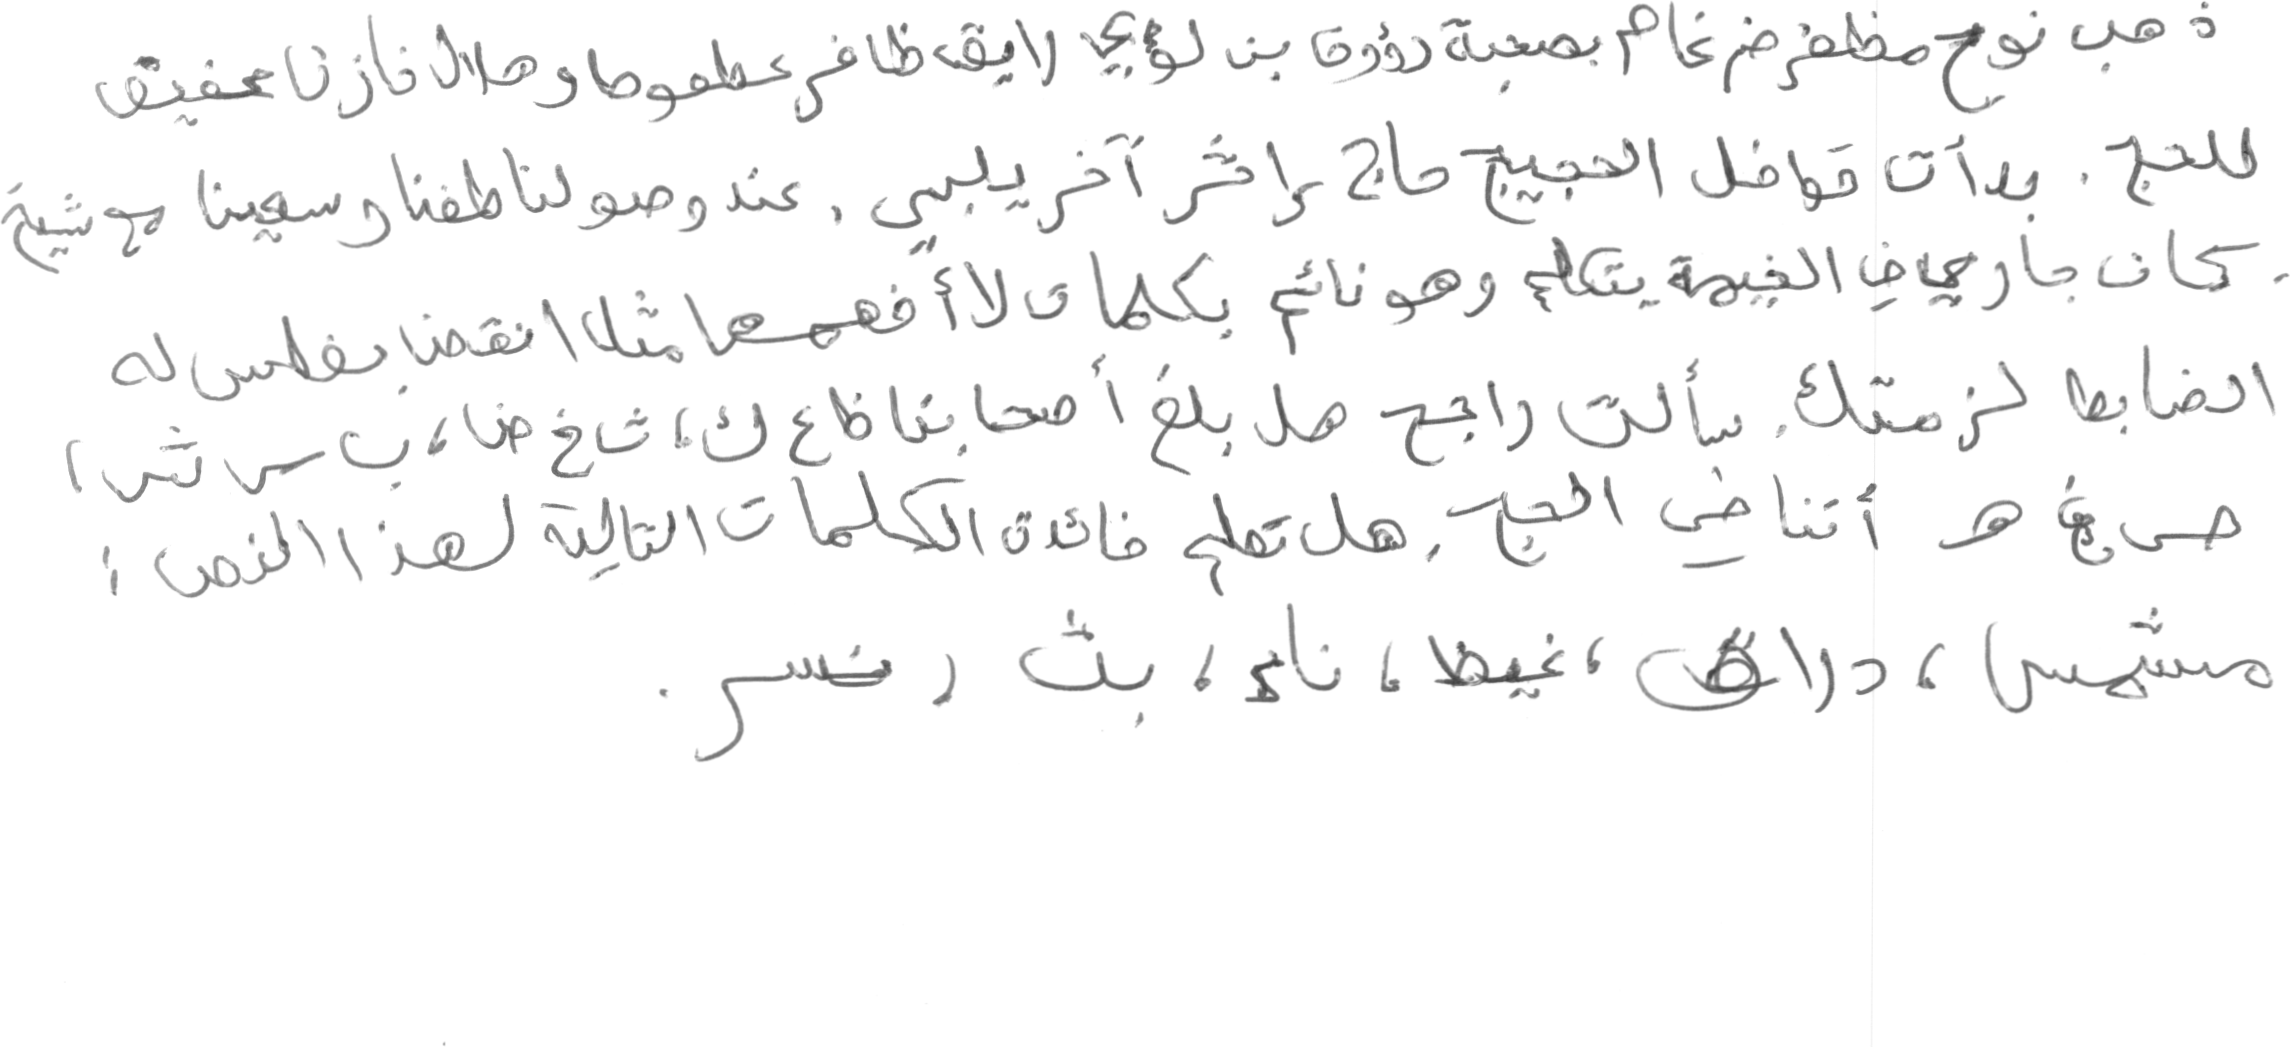 ذهب نوح مظفر ضرغام بصحبة رؤوف بن لؤي لايق ظافر عطعوط و هلال فازع عفيق
للحج . بدأت قوافل الحجيج حاج إثر آخر يلبي . عند وصولنا طفنا و سعينا مع شيخ
. كان جاري في الخيمة يتكلم وهو نائم بكلمات لا أفهمها مثل انقض بغطس له
الضابط لزمتك . سألت راجح هل بلغ أصحابنا ظ ع ك ، ث خ ض ، ب س ش ،
ص غ هـ أتنا في الحج . هل تعلم فائدة الكلمات التالية لهذا النص :
مشمس ، دراق ، غيظ ، ناء ، بث ، خس .